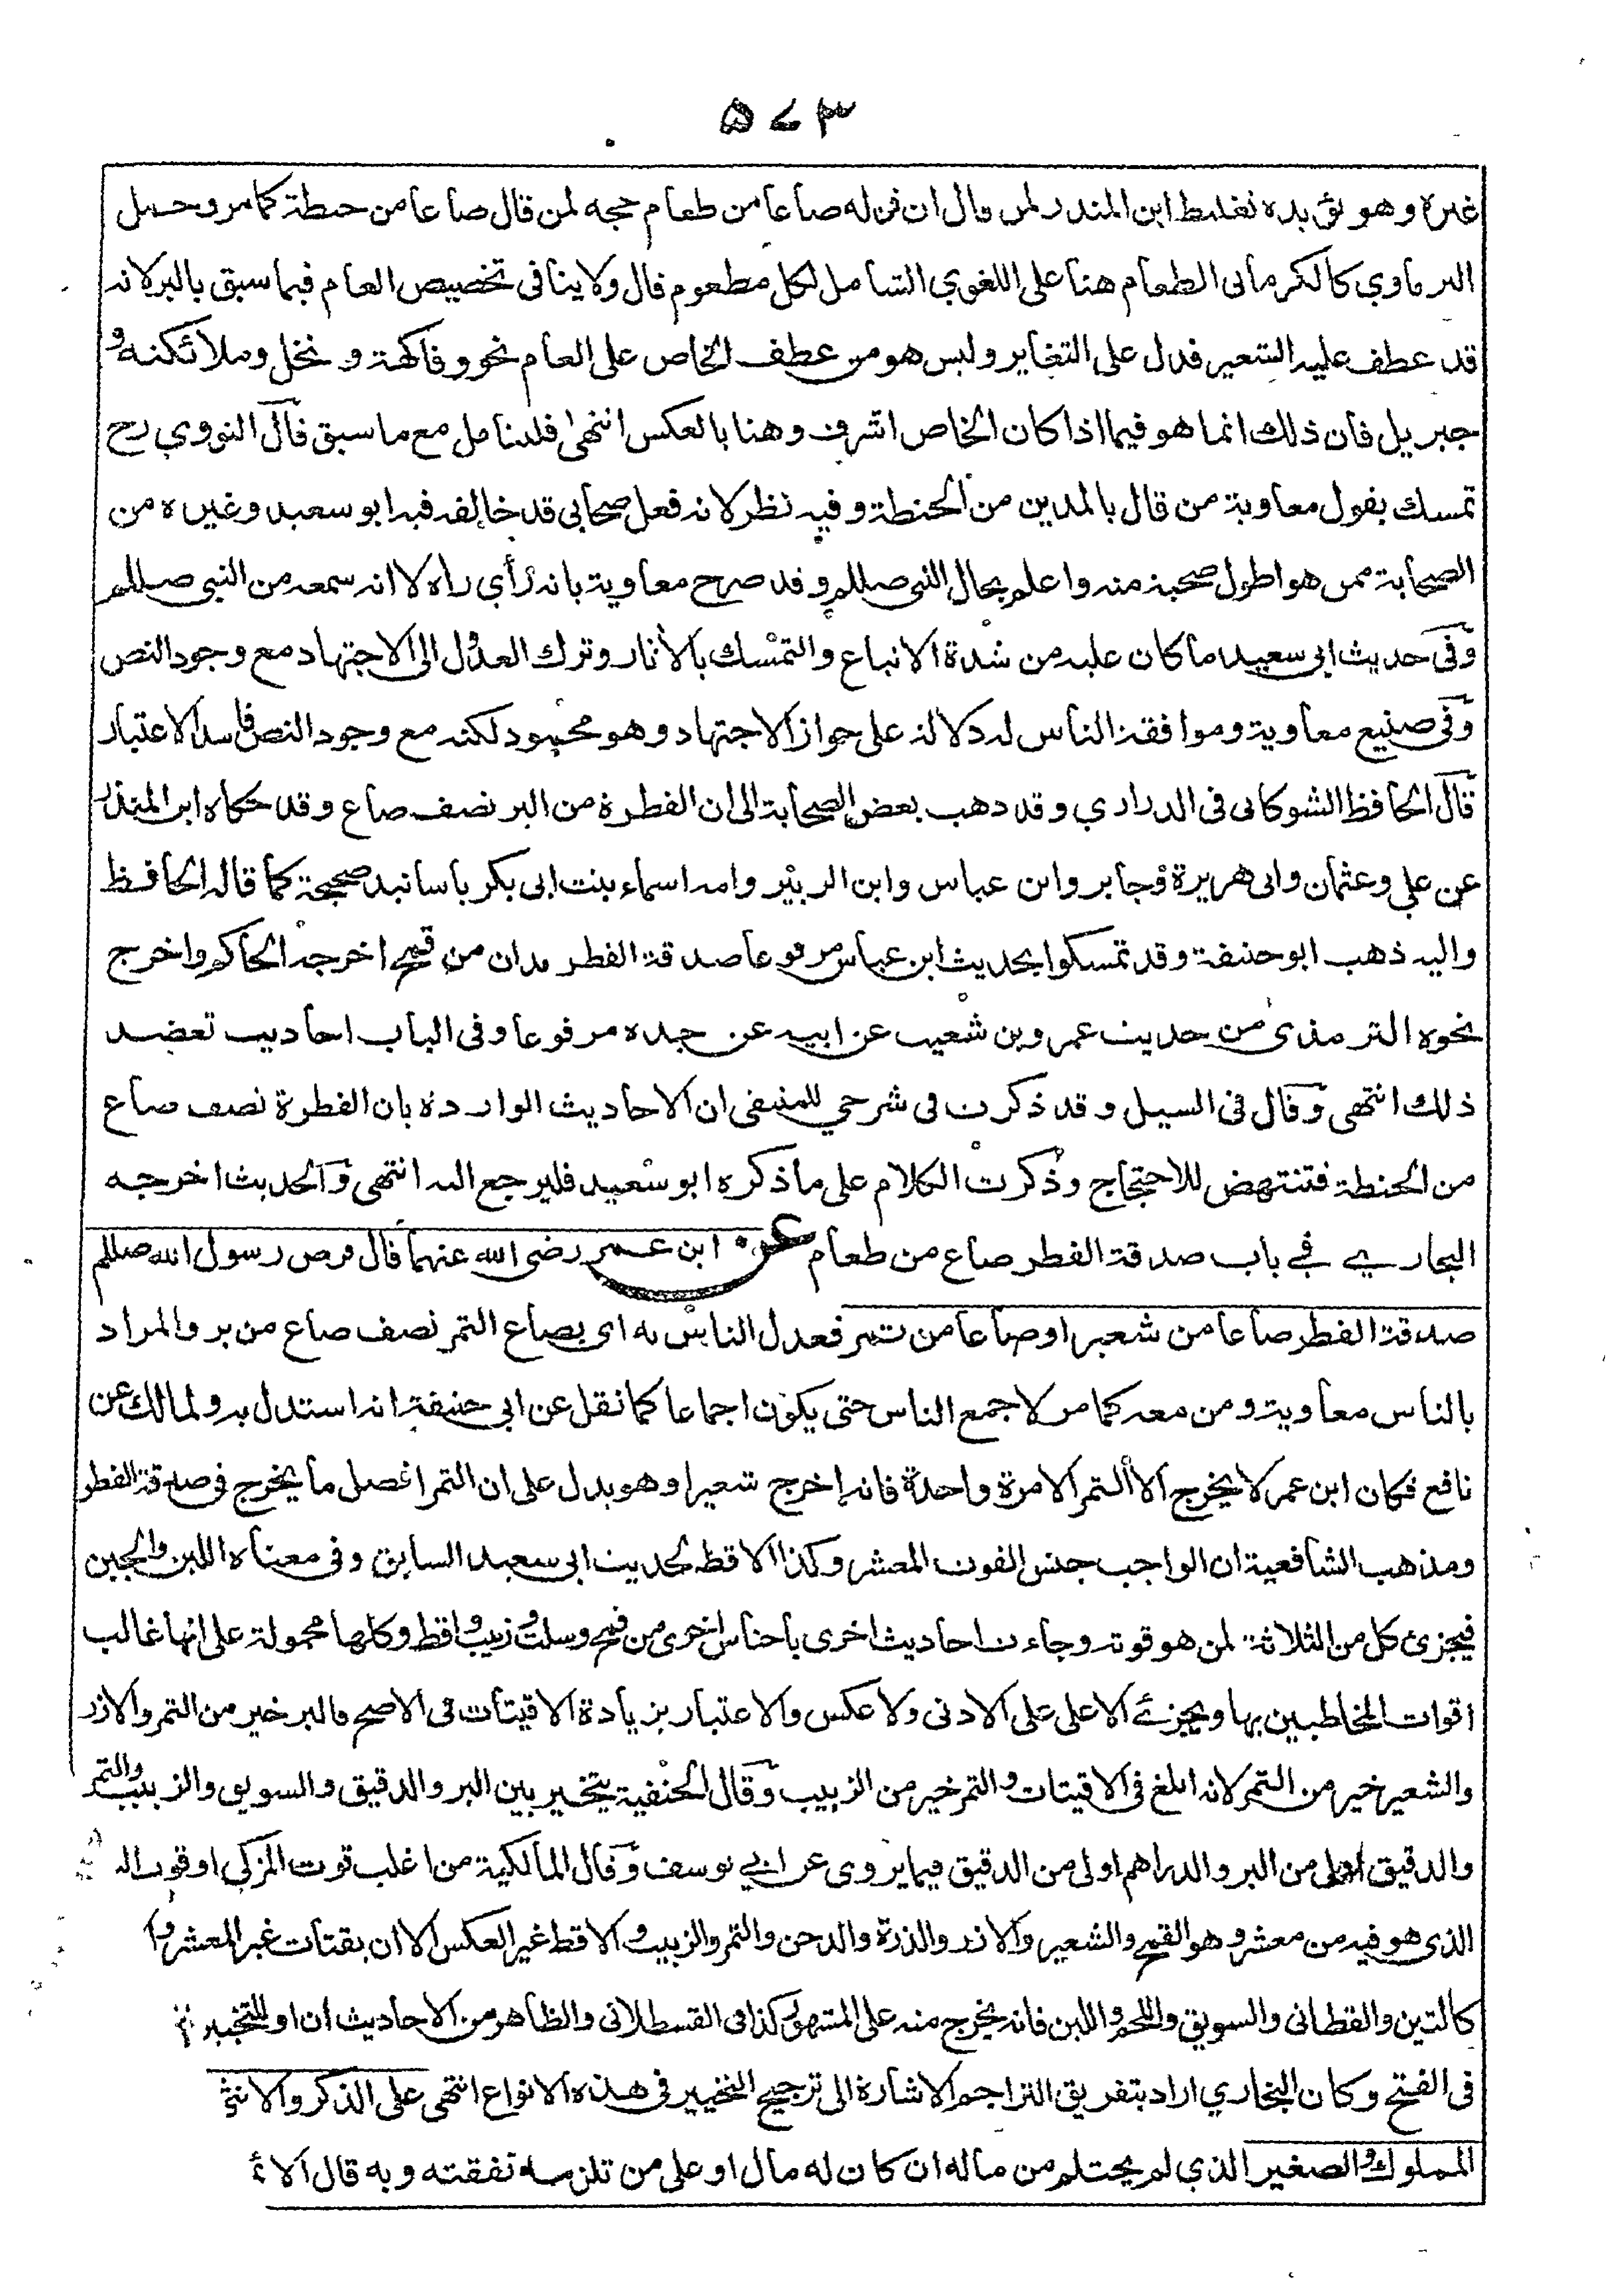 ٥٧٣
غيره وهو يؤيده تغليط ابن المنذر لمن قال ان قوله صاعا من طعام حجه لمن قال صاعا من حنطة كما مر وحمل
البرماوي كالكرماني الطعام هنا على اللغوي الشامل لكل مطعوم قال ولا ينافي تخصيص العام فيما سبق بالبر لانه
قد عطف عليه الشعير فدل على التغاير وليس هو من عطف الخاص على العام نحو وفاكهة و نخل وملائكته و
جبريل فان ذلك انما هو فيما اذا كان الخاص اشرف وهنا بالعكس انتهى فليتامل مع ما سبق قال النووي رح
تمسك بقول معاوية من قال بالمدين من الحنطة وفيه نظر لانه فعل صحابي قد خالفه فيه ابو سعيد وغيره من
الصحابة ممن هو اطول صحبة منه واعلم بحال النبي صللم وقد صرح معاوية بانه رأي راه لا انه سمعه من النبي صللم
وفي حديث ابي سعيد ما كان عليه من شدة الاتباع والتمسك بالأثار وترك العدول الى الاجتهاد مع وجود النص
وفي صنيع معاوية وموافقة الناس له دلالة على جواز الاجتهاد وهو محمود لكنه مع وجود النص فاسد الاعتبار
قال الحافظ الشوكانى فى الدراري وقد ذهب بعض الصحابة الى ان الفطرة من البر نصف صاع وقد حكاه ابن المنذر
عن علي وعثمان وابى هريرة وجابر وابن عباس وابن الزبير وامه اسماء بنت ابى بكر باسانيد صحيحة كما قاله الحافظ
واليه ذهب ابو حنيفة وقد تمسكوا بحديث ابن عباس مرفوعا صدقة الفطر مدان من قمح اخرجه الحاكم واخرج
نحوه الترمذى من حديث عمرو بن شعيب عن ابيه عن جده مرفوعا وفى الباب احاديث تعضد
ذلك انتهى وقال فى السيل وقد ذكرت فى شرحي للمنتقى ان الاحاديث الوارده بان الفطرة نصف صاع
من الحنطة فتنتهض للاحتجاج وذكرت الكلام على ما ذكره ابو سعيد فليرجع اليه انتهى والحديث اخرجه
البخاري في باب صدقة الفطر صاع من طعام عن ابن عمر رضى الله عنهما قال فرض رسول الله صللم
صدقة الفطر صاعا من شعير او صاعا من تمر فعدل الناس به اى بصاع التمر نصف صاع من بر والمراد
بالناس معاوية ومن معه كما مر لا جمع الناس حتى يكون اجماعا كما نقل عن ابي حنيفة انه استدل به ولمالك عن
نافع فكان ابن عمر لا يخرج الا التمر الا مرة واحدة فانه اخرج شعيرا وهو يدل على ان التمر افضل ما يخرج فى صدقة الفطر
ومذهب الشافعية ان الواجب جنس القوت المعشر وكذا الاقط لحديث ابى سعيد السابق وفى معناه اللبن والجبن
فيجزئ كل من الثلاثة لمن هو قوته وجاءت احاديث اخرى باجناس اخرى من قمح وسلت وزبيب واقط وكلها محمولة على انها غالب
اقوات المخاطبين بها ويجزئ الاعلى على الادنى ولا عكس والاعتبار بزيادة الاقتيات فى الاصح فالبر خير من التمر والارز
والشعير خير من التمر لانه ابلغ فى الاقتيات والتمر خير من الزبيب وقال الحنفية يتخير بين البر والدقيق والسويق والزبيب والتمر
والدقيق اولى من البر والدراهم اولى من الدقيق فيما يروى عن ابي يوسف وقال المالكية من اغلب قوت المزكي او قوت
الذى هو فيه من معشر وهو القمح والشعير والارز والذرة والدخن والتمر والزبيب والاقط غير العكس الا ان يقتات غير المعشر
كالتين والقطانى والسويق واللحم واللبن فانه يخرج منه على المشهور كذا فى القسطلانى والظاهر من الاحاديث ان او للتخيير
فى الفتح وكان البخاري اراد بتفريق التراجم الاشارة الى ترجيح التخيير فى هذه الانواع انتهى على الذكر والانثى
المملوك والصغير الذي لم يحتلم من ماله ان كان له مال او على من تلزمه نفقته وبه قال الأ